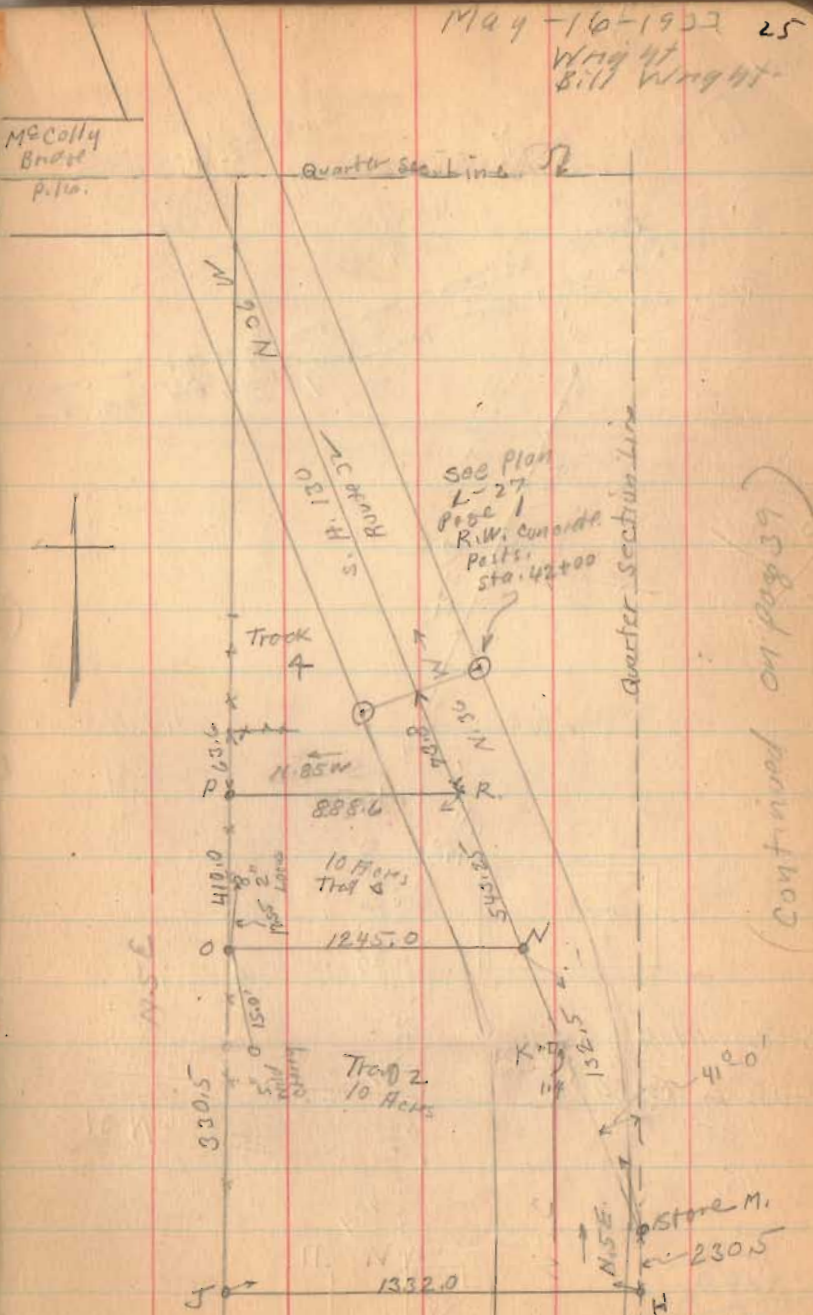 May -16-1933 25
Wright
Bill Wright
McColly
Bridge
Quarter Sec. Line
N 36 W
S. H. 130
Route 32
See Plan
L-27
Page 1
R.W. Concrete
Posts.
Sta. 42+00
Quarter Section Line
(Continued on page 39)
Track
4
63.6
N. 36 W
P
N. 85 W
888.6
R.
410.0
10 Acres
Tract 4
543.25
O
1245.0
N
N. 5 E
15.0'
K
132.5
Tract 2
10 Acres
330.5
41° 0'
N. 5 E.
Stone M.
230.5
J
1332.0
I